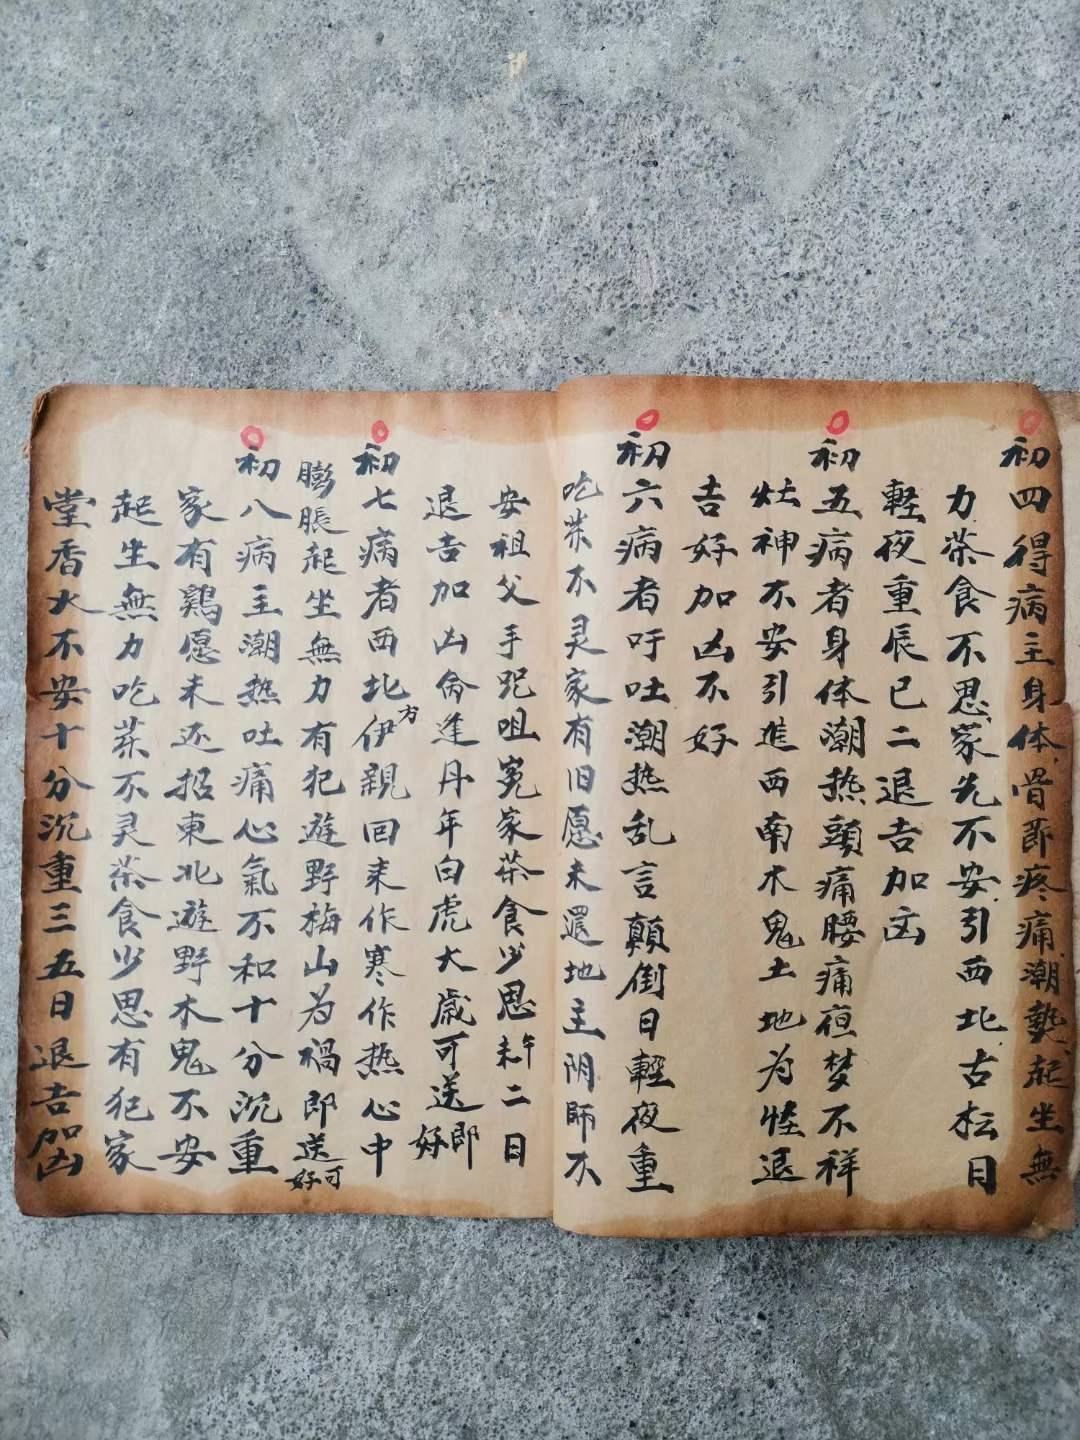 初四得病主身体骨節疼痛潮熱起坐無
力茶食不思家先不安引西北古枟日
軽夜重辰巳二退吉加凶
初五病者身体潮热頭痛腰痛夜梦不祥
灶神不安引進西南木鬼土地为怪退
吉好加凶不好
初六病者吁吐潮热乱言顛倒日輕夜重
吃茶不灵家有旧愿未還地主阴師不
安祖父手咒咀冤家茶食少思未午二日
退吉加凶命逢丹年白虎大歲可送即好
初七病者西北方伊親回来作寒作热心中
膨脹起坐無力有犯遊野梅山为禍即送可好
初八病主潮热吐痛心氣不和十分沉重
家有鷄愿未还招東北遊野木鬼不安
起坐無力吃茶不灵茶食少思有犯家
堂香火不安十分沉重三五日退吉加凶